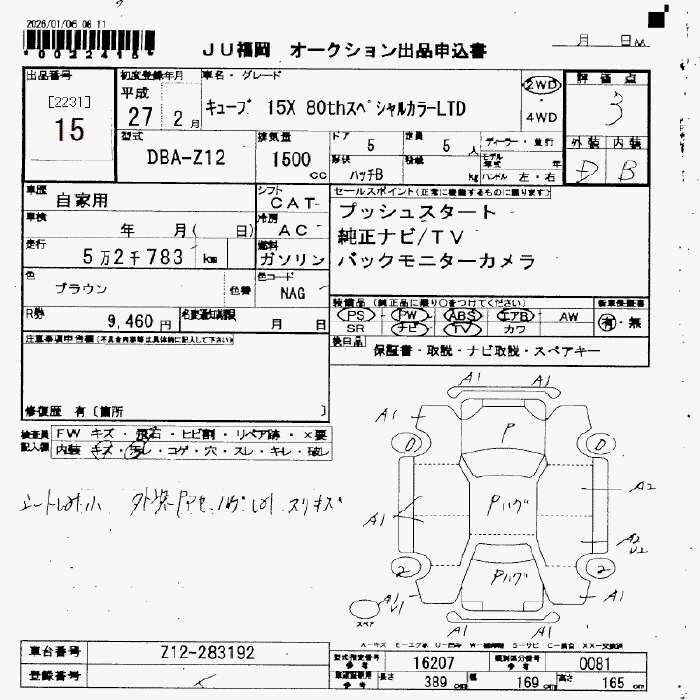 2026/01/06 06 11
*0022415*
JU福岡 オークション出品申込書
月 日
出品番号
[2231]
15
初度登録年月
平成
27 2月
車名・グレード
キューブ 15X 80thスペシャルカラーLTD
2WD
4WD
評価点
3
外装 内装
D B
型式
DBA-Z12
排気量
1500
cc
ドア
5
定員
5 人
形状
ハッチB
積載
kg
ディーラー・並行
モデル年式 年
ハンドル 左・右
車歴
自家用
シフト
CAT
車検
年 月( 日)
冷房
AC
走行
5万2千783 km
燃料
ガソリン
色
ブラウン
色番
色コード
NAG
R券
9,460 円
名変通知期限
月 日
セールスポイント(正常に機能するものに限ります)
プッシュスタート
純正ナビ/TV
バックモニターカメラ
装備品 (純正品に限り○をつけてください)
PS PW ABS エアB AW
SR ナビ TV カワ
新車保証書
有・無
後日品
保証書・取説・ナビ取説・スペアキー
注意事項申告欄(不具合内容等は具体的に記入して下さい)
修復歴 有〔箇所 〕
検査員記入欄
FW キズ・飛石・ヒビ割・リペア跡・×要
内装 キズ・汚レ・コゲ・穴・スレ・キレ・破レ
A1 A1
A1 A1
P
0 0
Pハゲ
A1
A2
A2
U2
2 2
Pハゲ
A1
V1
A1
A1 A1
スペア
車台番号
Z12-283192
登録番号
型式指定番号
参考
16207
類別区分番号
参考
0081
長さ 389 cm
幅 169 cm
高さ 165 cm